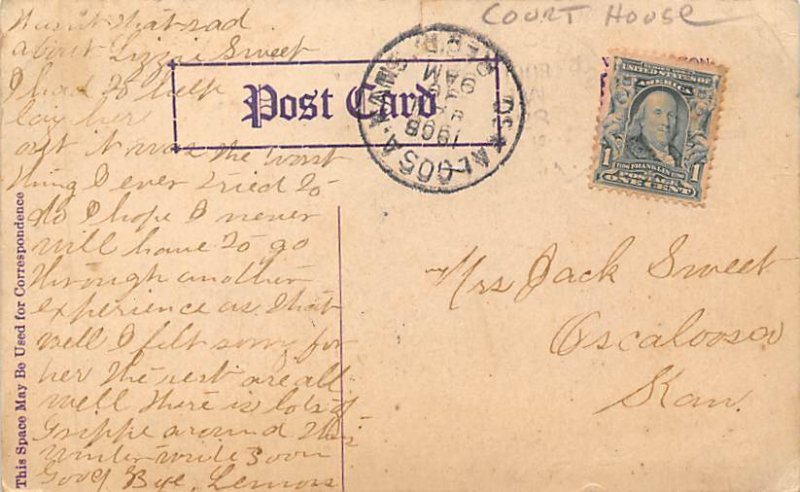 COURT HOUSE
Wasn't that sad
about Lizzie Sweet
I had to help
lay her
out it was the worst
thing I ever tried to
do I hope I never
will have to go
through another
experience as that
well I felt sorry for
her the rest are all
well there is lots of
Grippe around this
winter write soon
Good Bye, Lemons
Post Card
This Space May Be Used for Correspondence
OSKALOOSA KANS.
REC'D.
9 AM
1908
UNITED STATES OF
AMERICA
1 1
FRANKLIN
POSTAGE
ONE CENT
Mrs Jack Sweet
Oscaloosa
Kan.